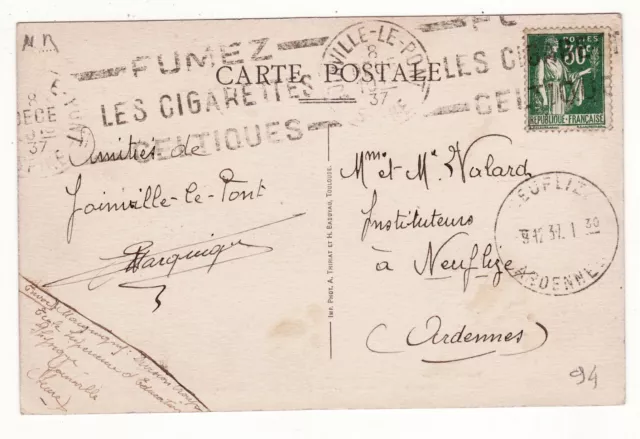 CARTE POSTALE
FUMEZ
LES CIGARETTES
CELTIQUES
JOINVILLE-LE-PONT
8
37
LES CIGA
CELTIQU
DECE
37
POSTES
REPUBLIQUE-FRANÇAISE
Amitiés de
Joinville-le-Pont
Mme et Mr Valard
Instituteurs
à Neuflize
(Ardennes)
NEUFLIZE
9-12 37. 1 30
ARDENNES
IMP. PHOT. A. THIRIAT ET H. BASUYAU, TOULOUSE.
Ecole Supérieure d'Education
Physique
Joinville
(Seine)
94